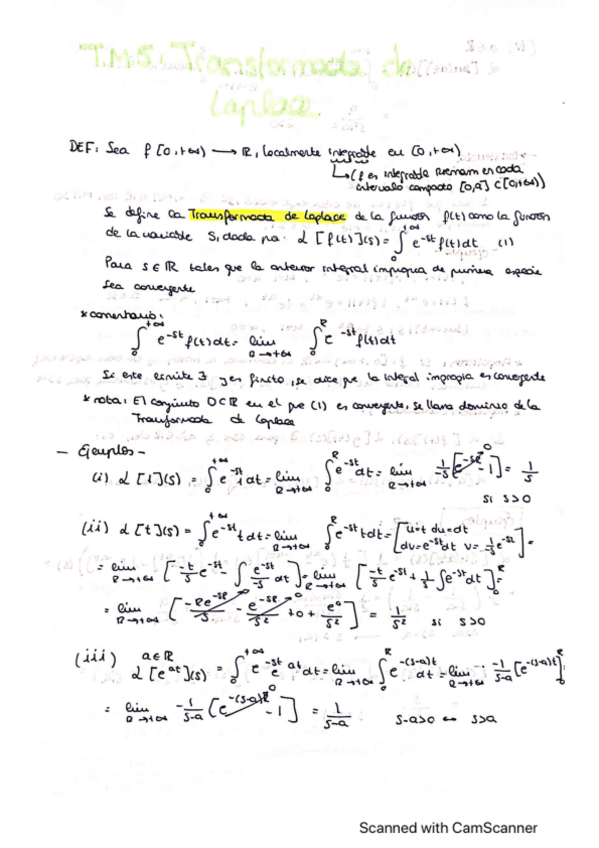 T.M5: Transformada de
Laplace.
DEF: Sea f [0,+∞) → ℝ, localmente integrable en [0,+∞)
↳ (f es integrable Riemann en cada
intervalo compacto [0,a] ⊂ [0,+∞))
Se define la Transformada de Laplace de la función f(t) como la función
de la variable S, dada por: L[f(t)](s) = ∫₀^{+∞} e^{-st} f(t)dt (1)
Para s ∈ ℝ tales que la anterior integral impropia de primera especie
sea convergente
* comentario:
∫₀^{+∞} e^{-st} f(t)dt = lim_{R→+∞} ∫₀^R e^{-st} f(t)dt
Si este límite ∃ y es finito, se dice que la integral impropia es convergente
* nota: El conjunto D⊂ℝ en el que (1) es convergente, se llama dominio de la
Transformada de Laplace
- Ejemplos -
(i) L[1](s) = ∫₀^{+∞} e^{-st} dt = lim_{R→+∞} ∫₀^R e^{-st} dt = lim_{R→+∞} 1/-s [e^{-sR} - 1] = 1/s
0
si s>0
(ii) L[t](s) = ∫₀^{+∞} e^{-st} t dt = lim_{R→+∞} ∫₀^R e^{-st} t dt = [u=t du=dt
dv=e^{-st}dt v=-1/s e^{-st}] =
= lim_{R→+∞} [-t/s e^{-st} - ∫ e^{-st}/-s dt] = lim_{R→+∞} [-t/s e^{-st} + 1/s ∫ e^{-st} dt]₀^R =
= lim_{R→+∞} [-Re^{-sR}/s - e^{-sR}/s² + 0 + e⁰/s²] = 1/s² si s>0
(iii) a∈ℝ
L[e^{at}](s) = ∫₀^{+∞} e^{-st} e^{at} dt = lim_{R→+∞} ∫₀^R e^{-(s-a)t} dt = lim_{R→+∞} -1/s-a [e^{-(s-a)t}]₀^R
= lim_{R→+∞} -1/s-a [e^{-(s-a)R} - 1] = 1/s-a s-a>0 ↔ s>a
Scanned with CamScanner